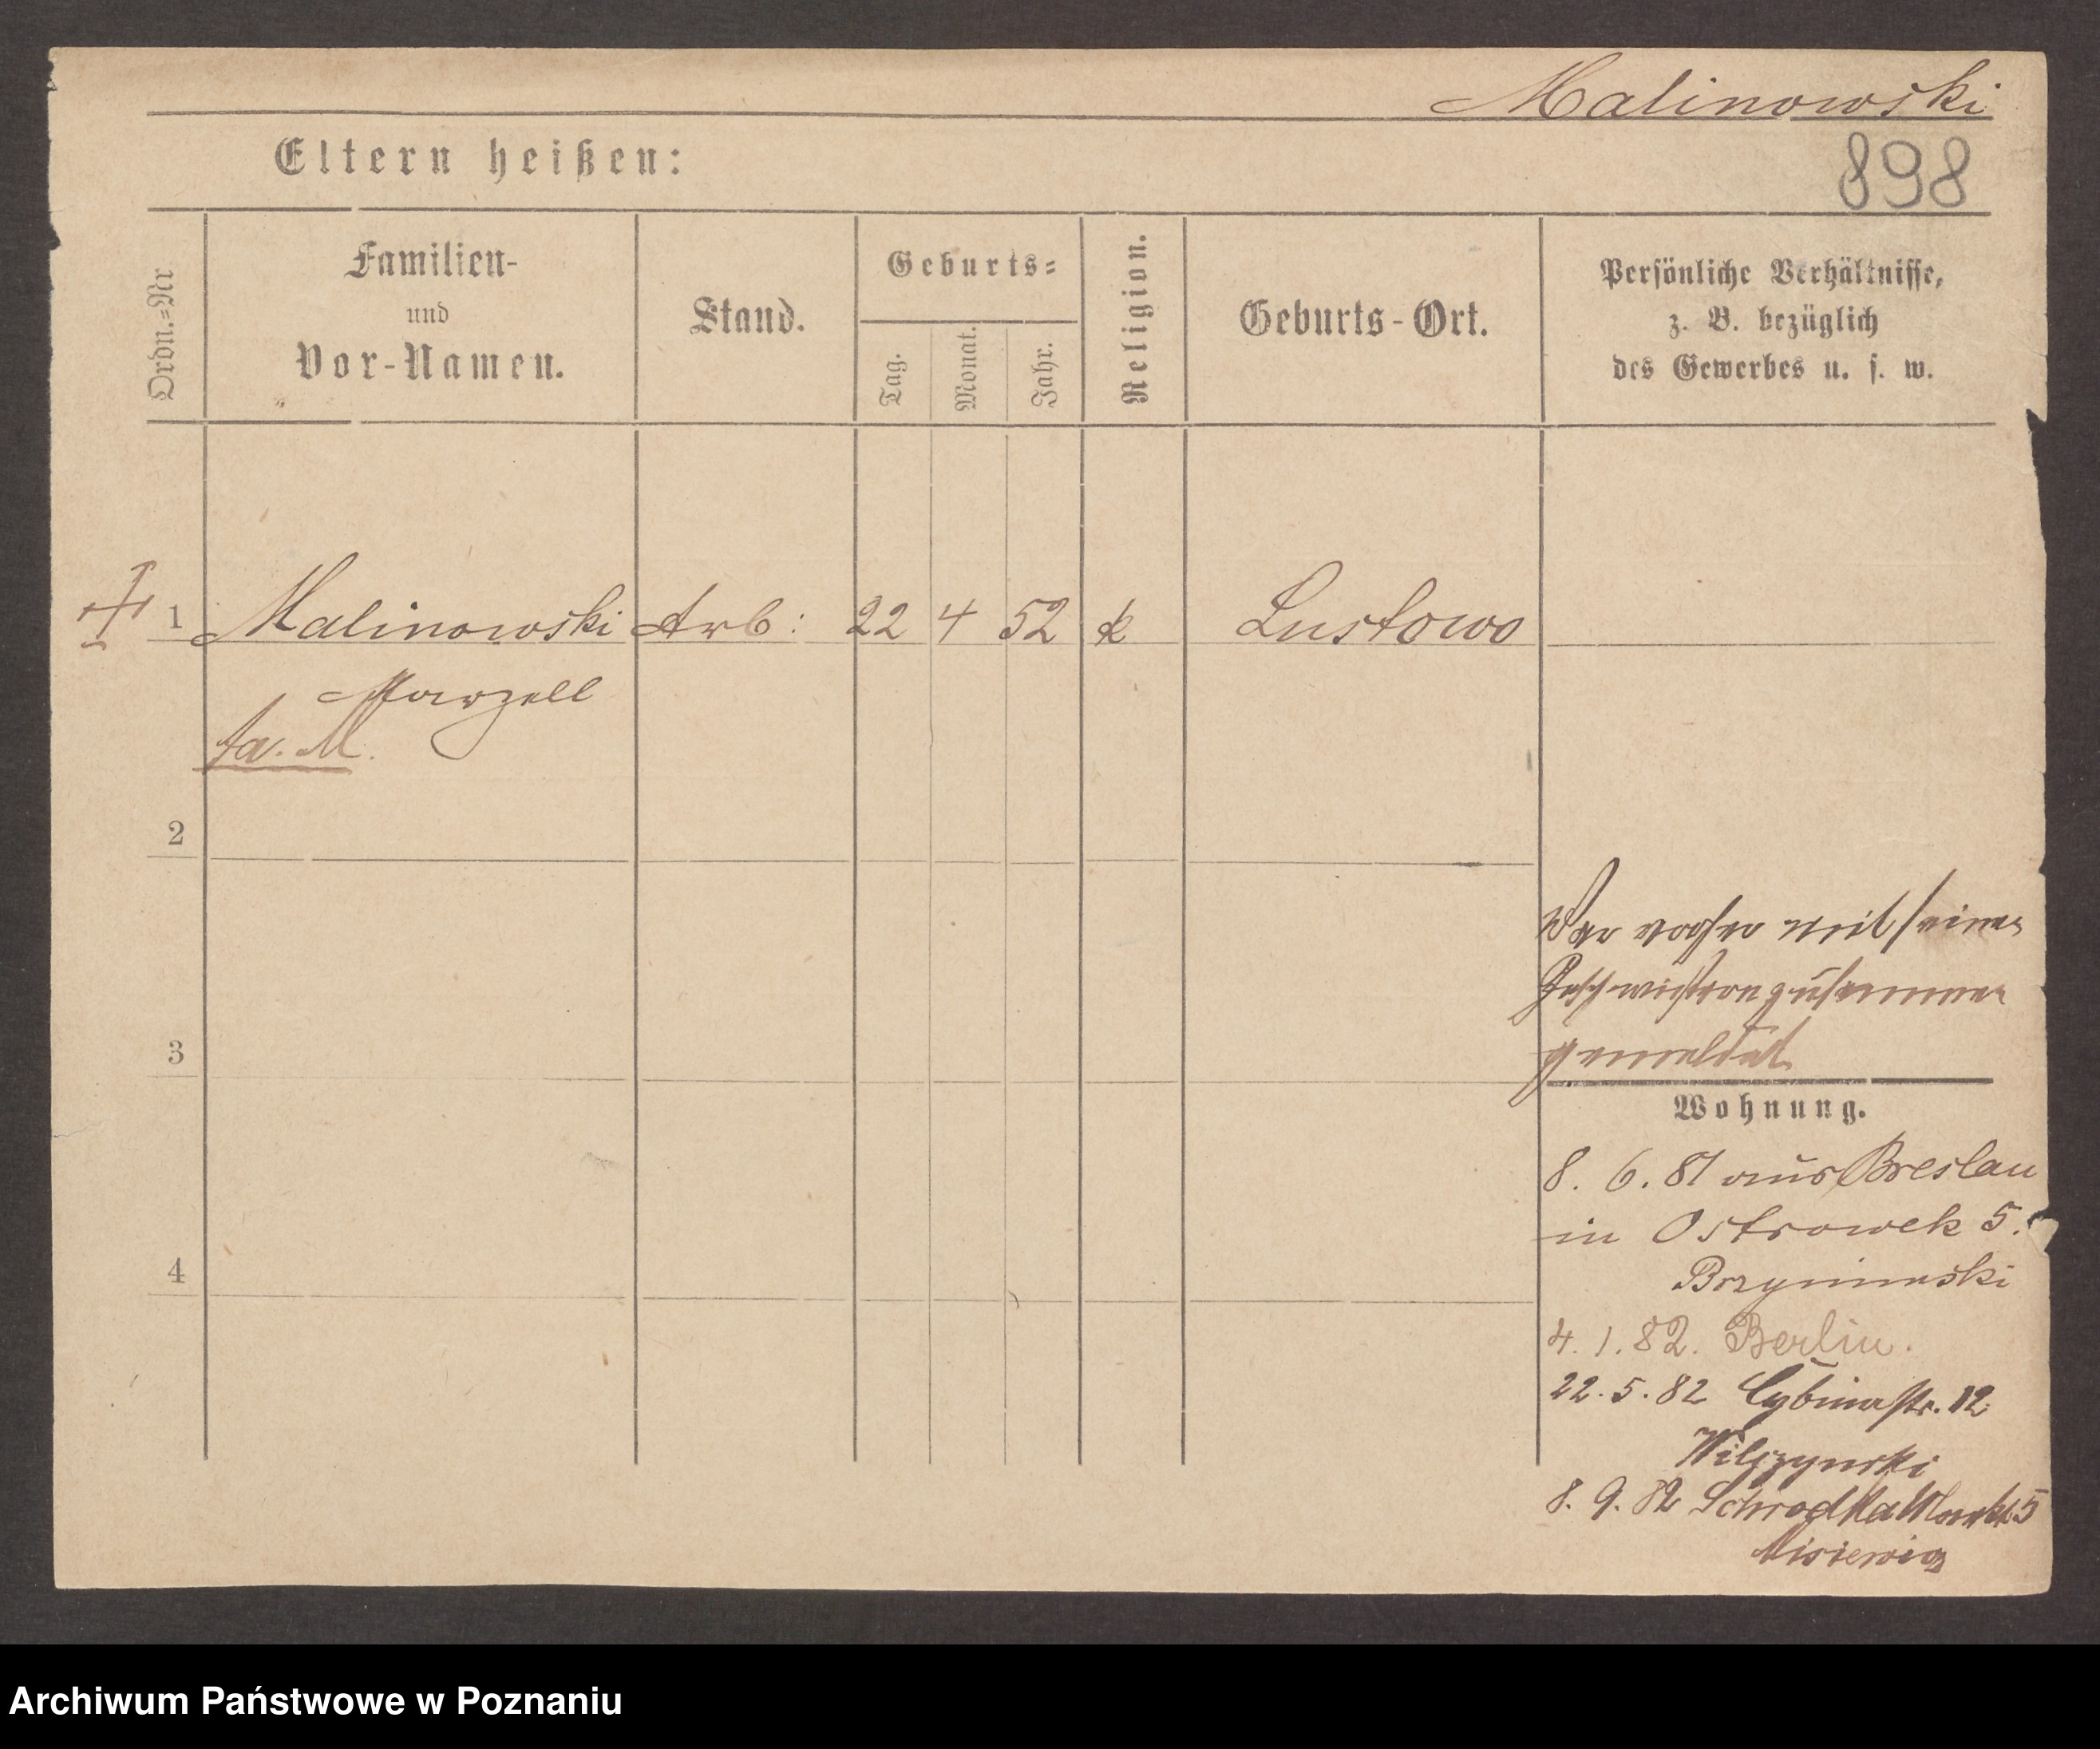 Malinowski
Eltern heißen:
898
Ordn.-Nr
Familien-
und
Vor-Namen.
Stand.
Geburts-
Tag.
Monat.
Jahr.
Religion.
Geburts-Ort.
Persönliche Verhältnisse,
z. B. bezüglich
des Gewerbes u. s. w.
1 Malinowski Arb: 22 4 52 k Lustowo
Marzell
fa. M.
2
War vorher mit seinen
Geschwistern zusammen
gemeldet
3
Wohnung.
8. 6. 81 aus Breslau
in Ostrowek 5.
4
4. 1. 82. Berlin.
22. 5. 82 Cybinastr. 12
Wilczynski
8. 9. 82 Schrodka Markt 5
Misiewicz
Archiwum Państwowe w Poznaniu